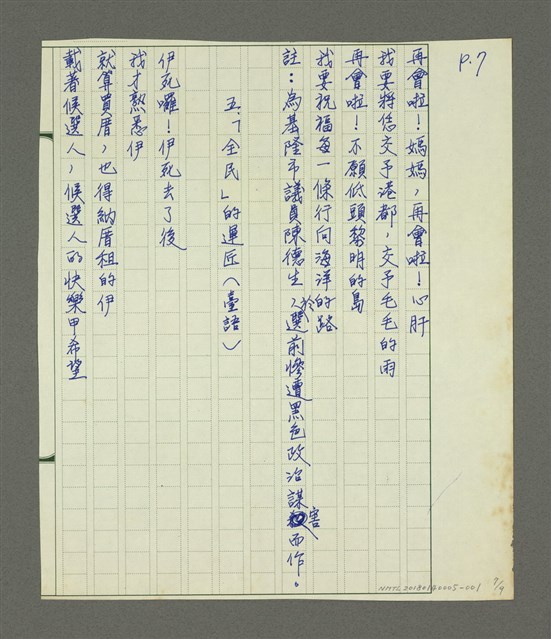 P.7
再會啦！媽媽，再會啦！心肝
我要將您交予港都，交予毛毛的雨
再會啦！不願低頭黎明的島
我要祝福每一條行向海洋的路
註：為基隆市議員陳德生，於選前慘遭黑色政治謀害而作。
五、「全民」的運匠（臺語）
伊死囉！伊死去了後
我才熟悉伊
就算買厝，也得納厝租的伊
戴著候選人，候選人的快樂甲希望
NMTL20180130005-001
7/9